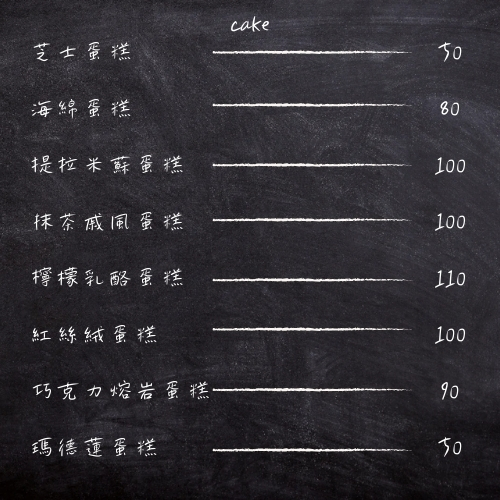 cake
芝士蛋糕 50
海綿蛋糕 80
提拉米蘇蛋糕 100
抹茶戚風蛋糕 100
檸檬乳酪蛋糕 110
紅絲絨蛋糕 100
巧克力熔岩蛋糕 90
瑪德蓮蛋糕 50